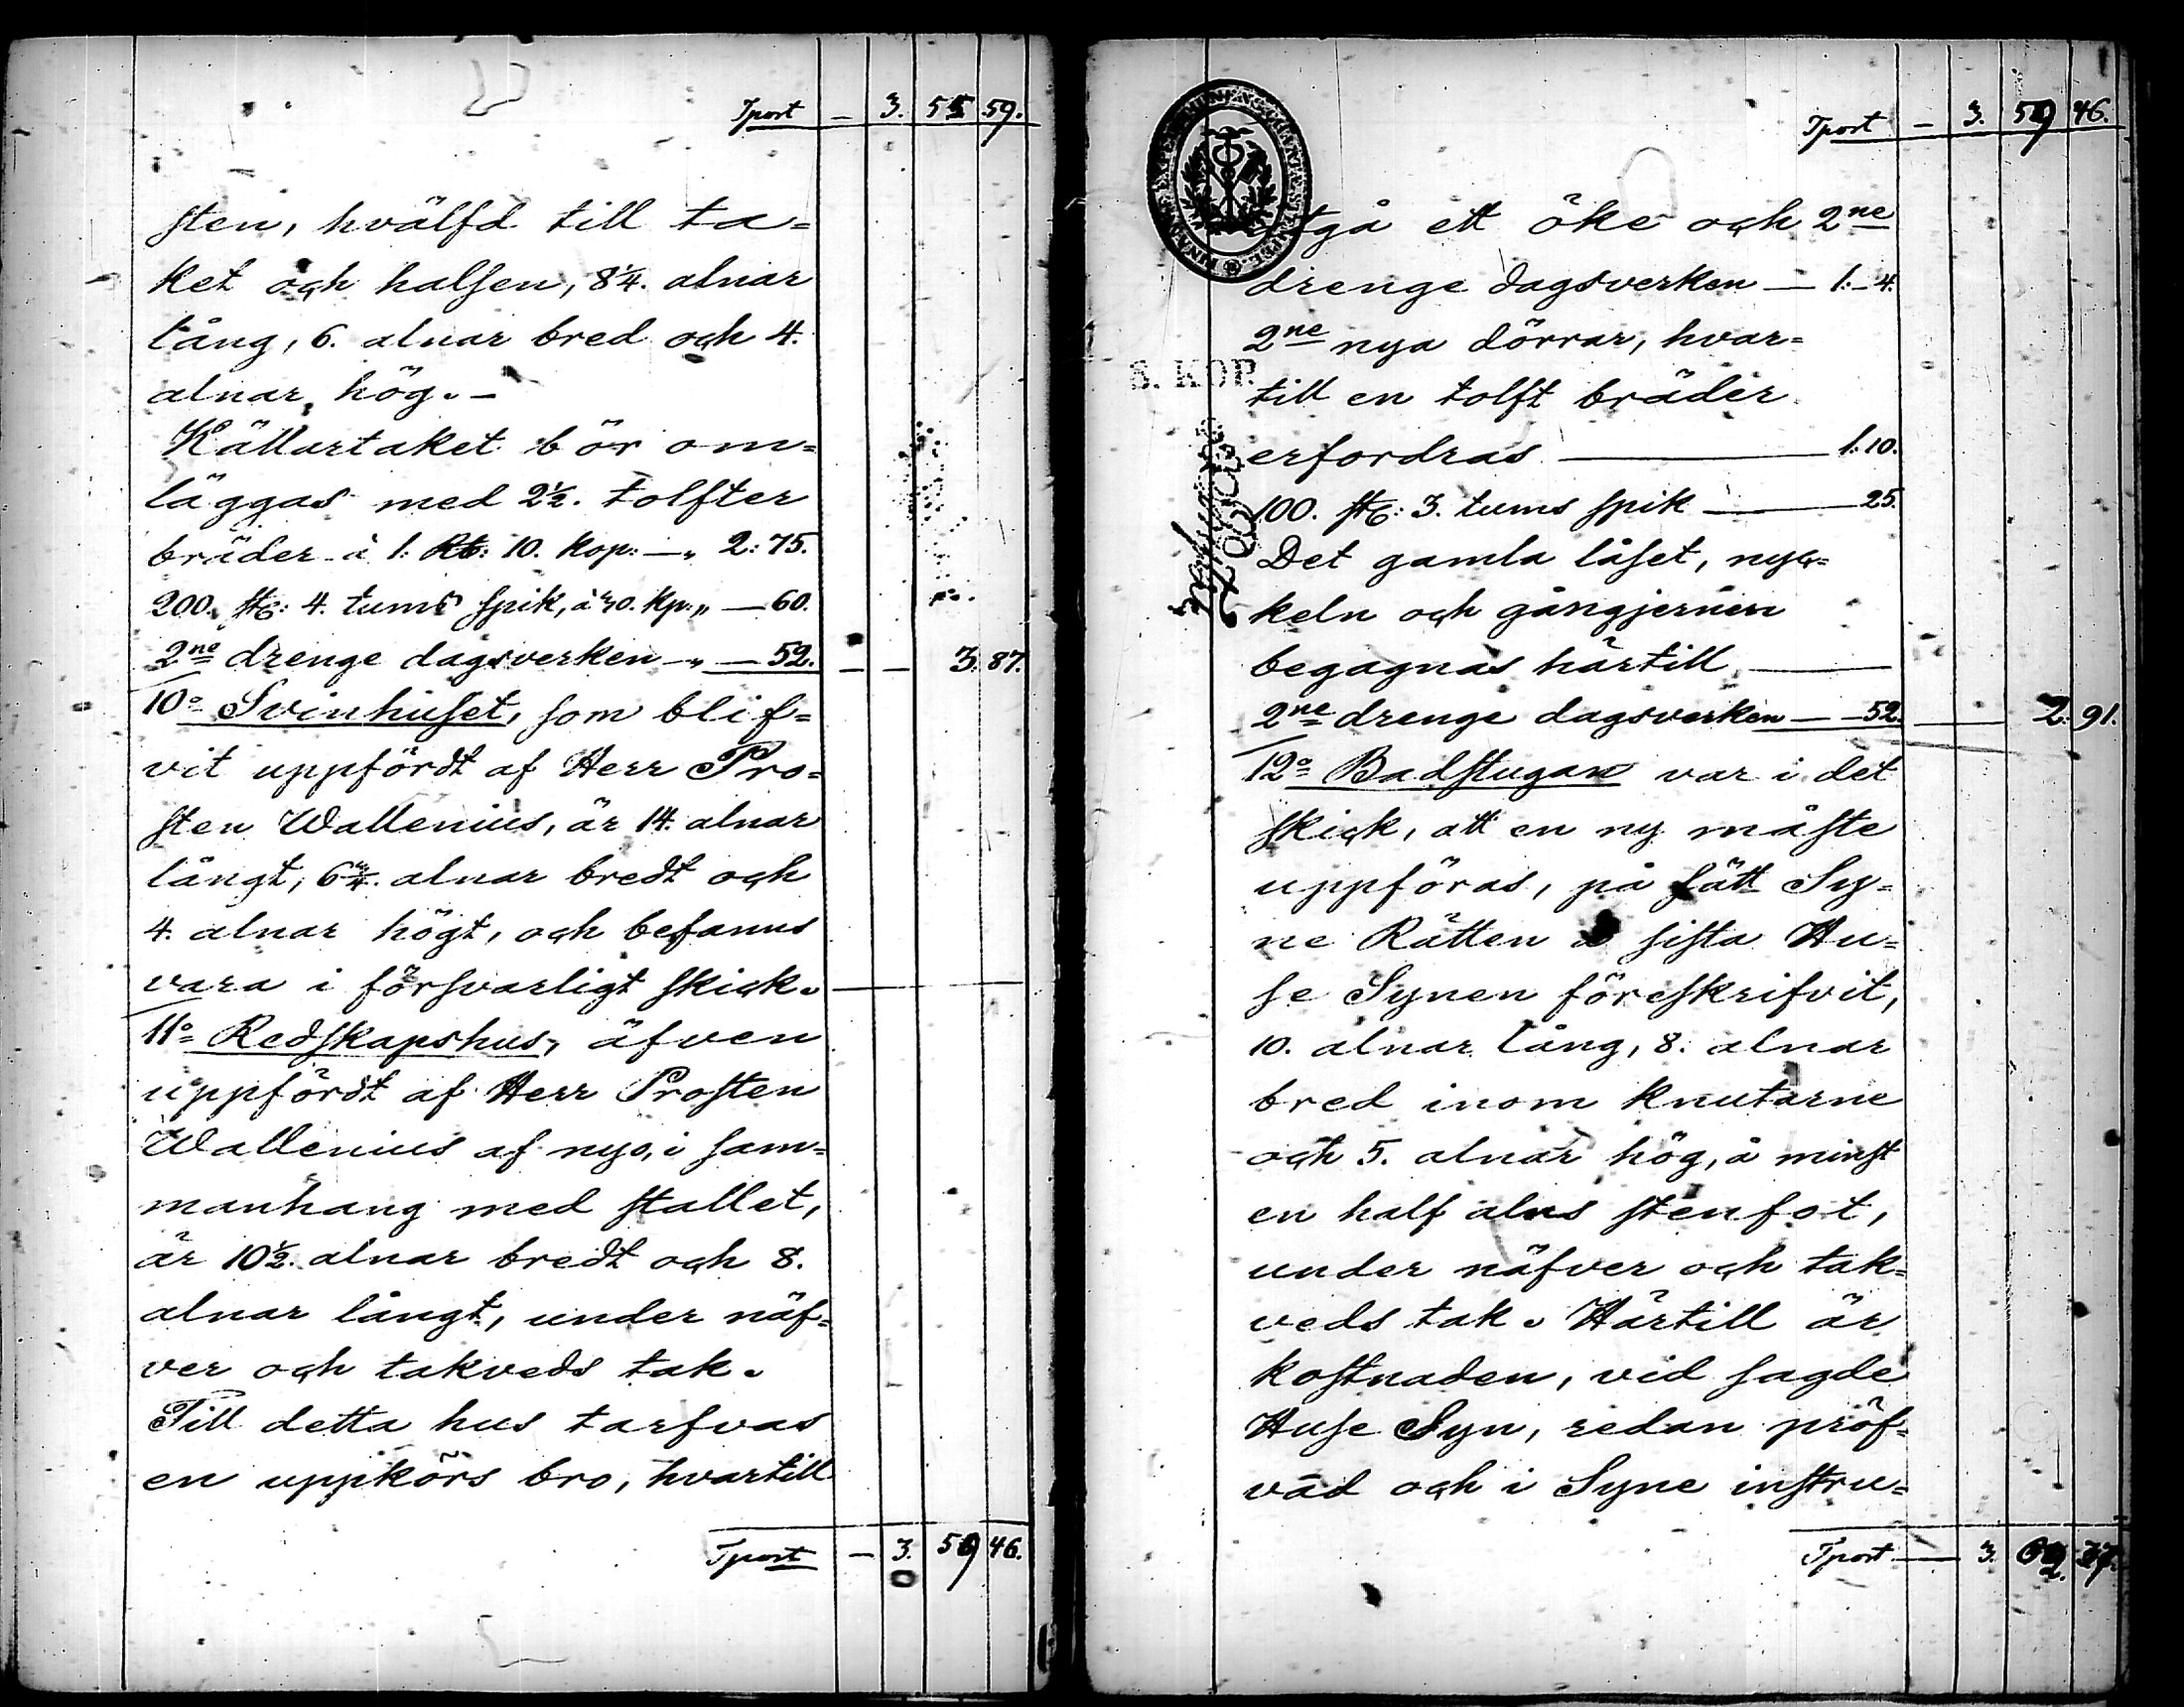 Tport — 3. 55 59.
sten, hvälfd till ta=
ket och halsen, 8 1/4. alnar
lång, 6. alnar bred och 4.
alnar hög. —
Källartaket bör om=
läggas med 2 1/2. tolfter
bräder à 1: Rb: 10. kop: — „ 2: 75.
200. st: 4. tums spik, à 30. kp: „ — 60.
2ne drenge dagsverken — „ — 52. — — 3. 87.
10o Svinhuset, som blif=
vit uppfördt af Herr Pro=
sten Wallenius, är 14. alnar
långt, 6 3/4. alnar bredt och
4. alnar högt, och befanns
vara i försvarligt skick. —
11o Redskapshus, äfven
uppfördt af Herr Prosten
Wallenius af nyo, i sam=
manhang med stallet,
är 10 1/2. alnar bredt och 8.
alnar långt, under näf=
ver och takveds tak.
Till detta hus tarfvas
en uppkörs bro, hvartill
Tport — 3. 59 46.
Tport — 3. 59 46.
åtgå ett öke och 2ne
drenge dagsverken — 1: 4.
2ne nya dörrar, hvar=
S. KOP.
till en tolft bräder
erfordras — 1: 10.
100. st: 3. tums spik — 25.
Det gamla låset, nyc=
keln och gångjernen
begagnas härtill —
2ne drenge dagsverken — 52. — 2. 91.
12o Badstugan var i det
skick, att en ny måste
uppföras, på sätt Sy=
ne Rätten à sista Hu=
se Synen föreskrifvit,
10. alnar lång, 8. alnar
bred inom knutarne
och 5. alnar hög, å minst
en half alns stenfot,
under näfver och tak=
veds tak. Härtill är
kostnaden, vid sagde
Huse Syn, redan pröf=
vad och i Syne instru=
Tport — 3. 62. 37.